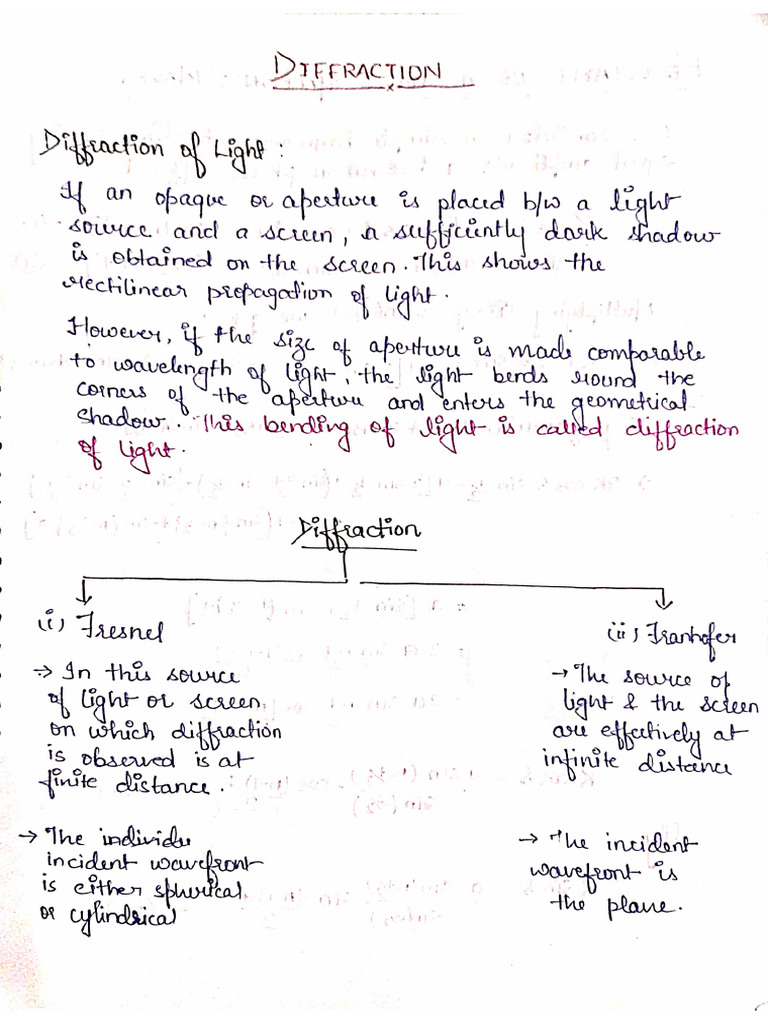 DIFFRACTION
Diffraction of Light:
If an opaque or aperture is placed b/w a light
source and a screen, a sufficiently dark shadow
is obtained on the screen. This shows the
rectilinear propagation of light.
However, if the size of aperture is made comparable
to wavelength of light, the light bends round the
corners of the aperture and enters the geometrical
shadow. This bending of light is called diffraction
of light.
Diffraction
(i) Fresnel
(ii) Franhofer
→ In this source
of light or screen
on which diffraction
is observed is at
finite distance.
→ The source of
light & the screen
are effectively at
infinite distance
→ The individu
incident wavefront
is either spherical
or cylindrical
→ The incident
wavefront is
the plane.